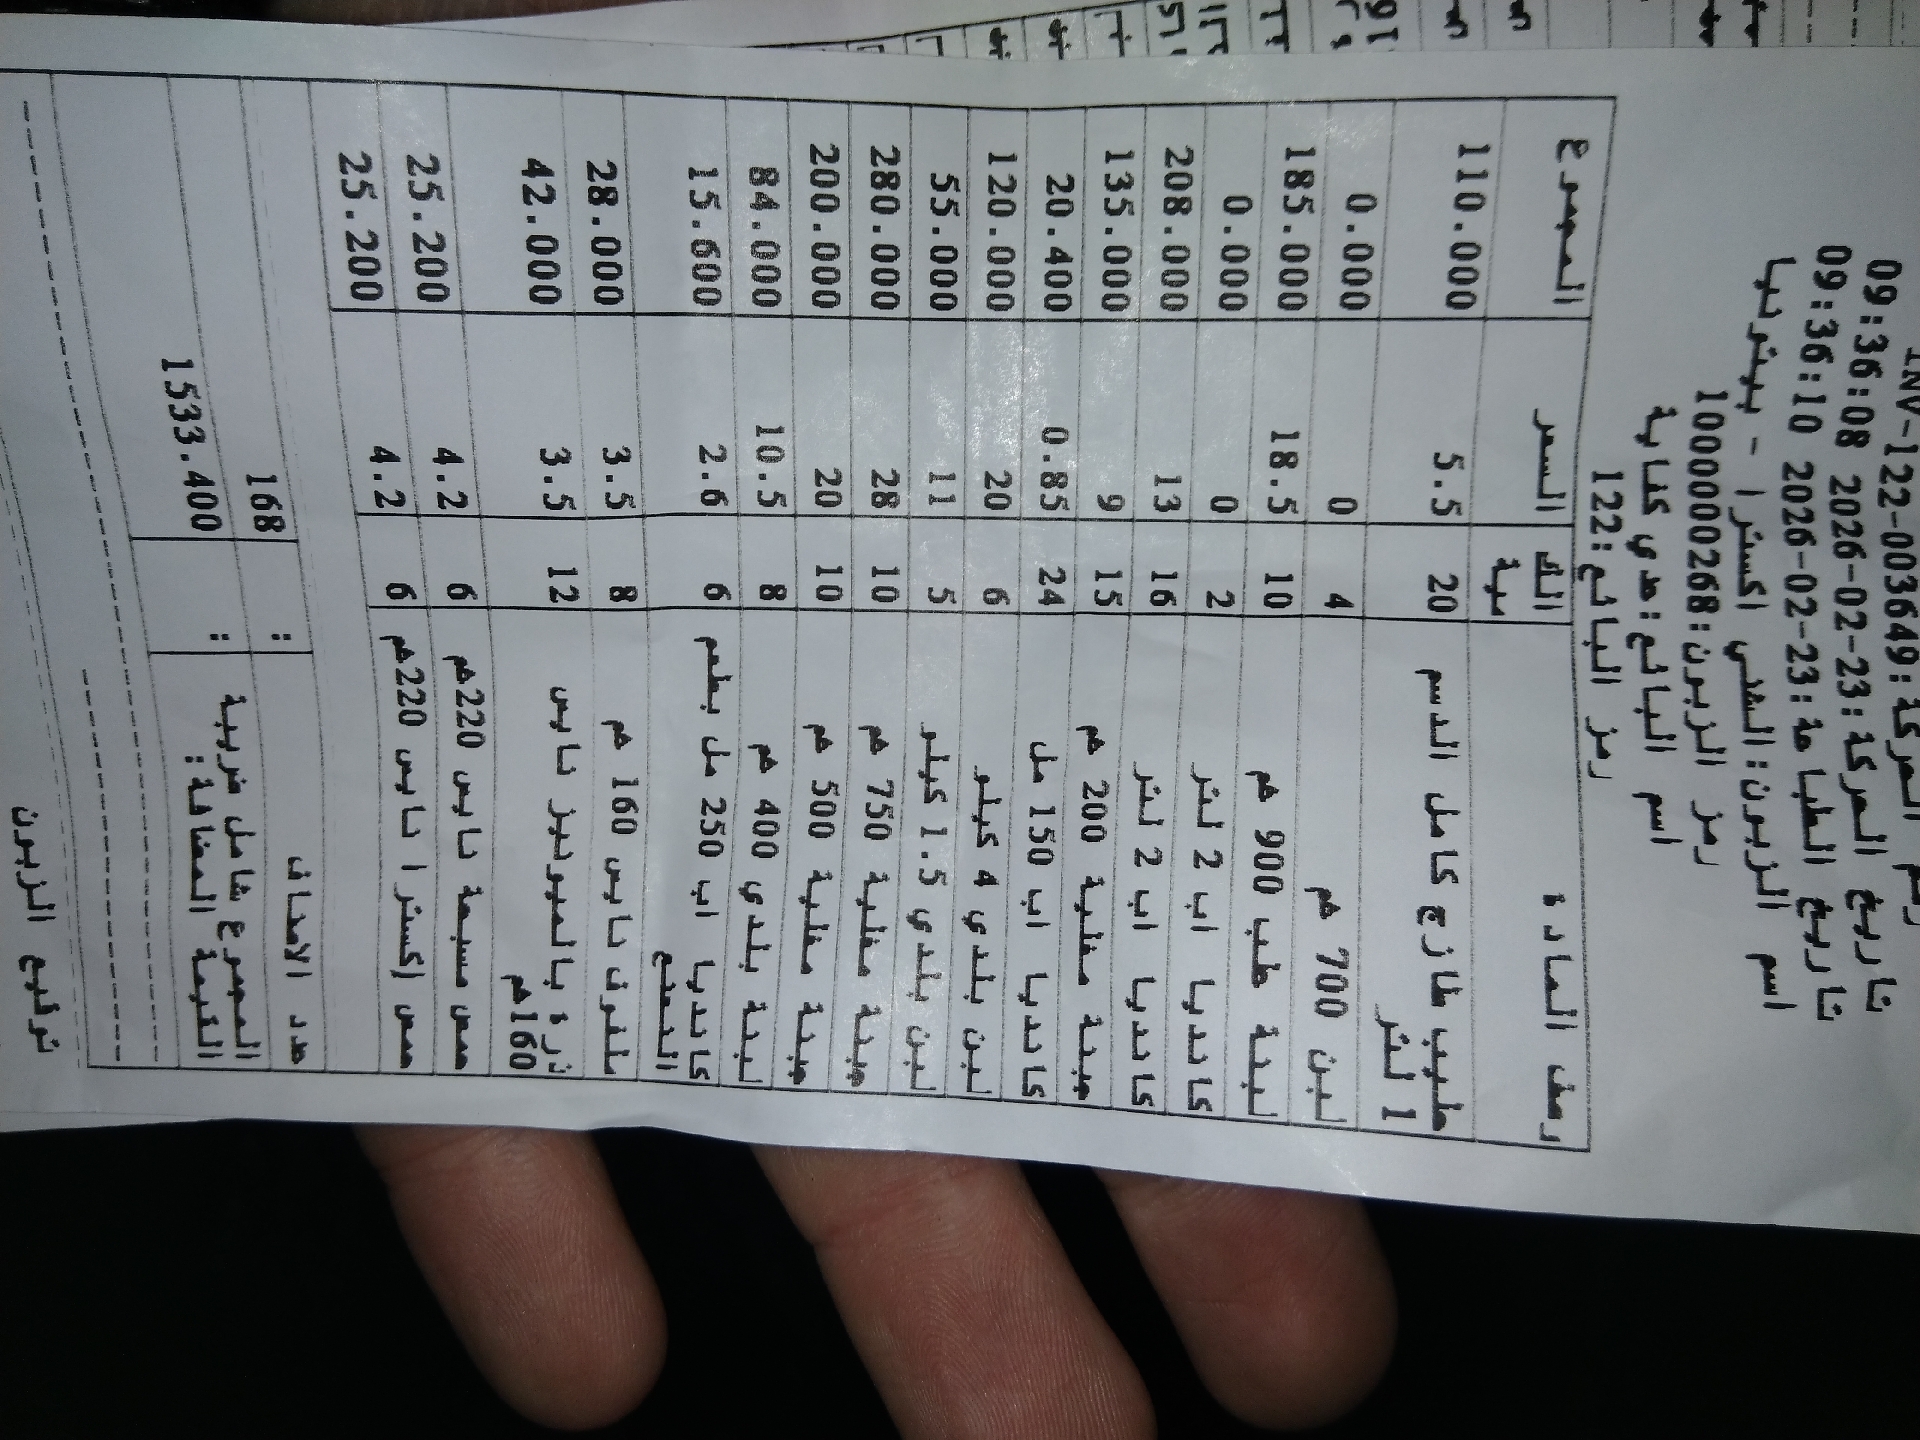 رقم الحركة:INV-122-003649
تاريخ الحركة:23-02-2026 09:36:08
تاريخ الطباعة:23-02-2026 09:36:10
اسم الزبون:الشني اكسترا - بيتونيا
رمز الزبون:1000000268
اسم البائع:عدي كفاية
رمز البائع:122
وصف المادة الكمية السعر المجموع
حليب طازج كامل الدسم 1 لتر 20 5.5 110.000
لبن 700 غم 4 0 0.000
لبنة علب 900 غم 10 18.5 185.000
كانديا اب 2 لتر 2 0 0.000
كانديا اب 2 لتر 16 13 208.000
جبنة مغلية 200 غم 15 9 135.000
كانديا اب 150 مل 24 0.85 20.400
لبن بلدي 4 كيلو 6 20 120.000
لبن بلدي 1.5 كيلو 5 11 55.000
جبنة مغلية 750 غم 10 28 280.000
جبنة مغلية 500 غم 10 20 200.000
لبنة بلدي 400 غم 8 10.5 84.000
كانديا اب 250 مل بطعم 6 2.6 15.600
ملفوف نايس 160 غم 8 3.5 28.000
ذرة بالميونيز نايس 160غم 12 3.5 42.000
حمص مسبحة نايس 220غم 6 4.2 25.200
حمص اكسترا نايس 220غم 6 4.2 25.200
عدد الاصناف : 168
المجموع شامل ضريبة القيمة المضافة: : 1533.400
توقيع الزبون